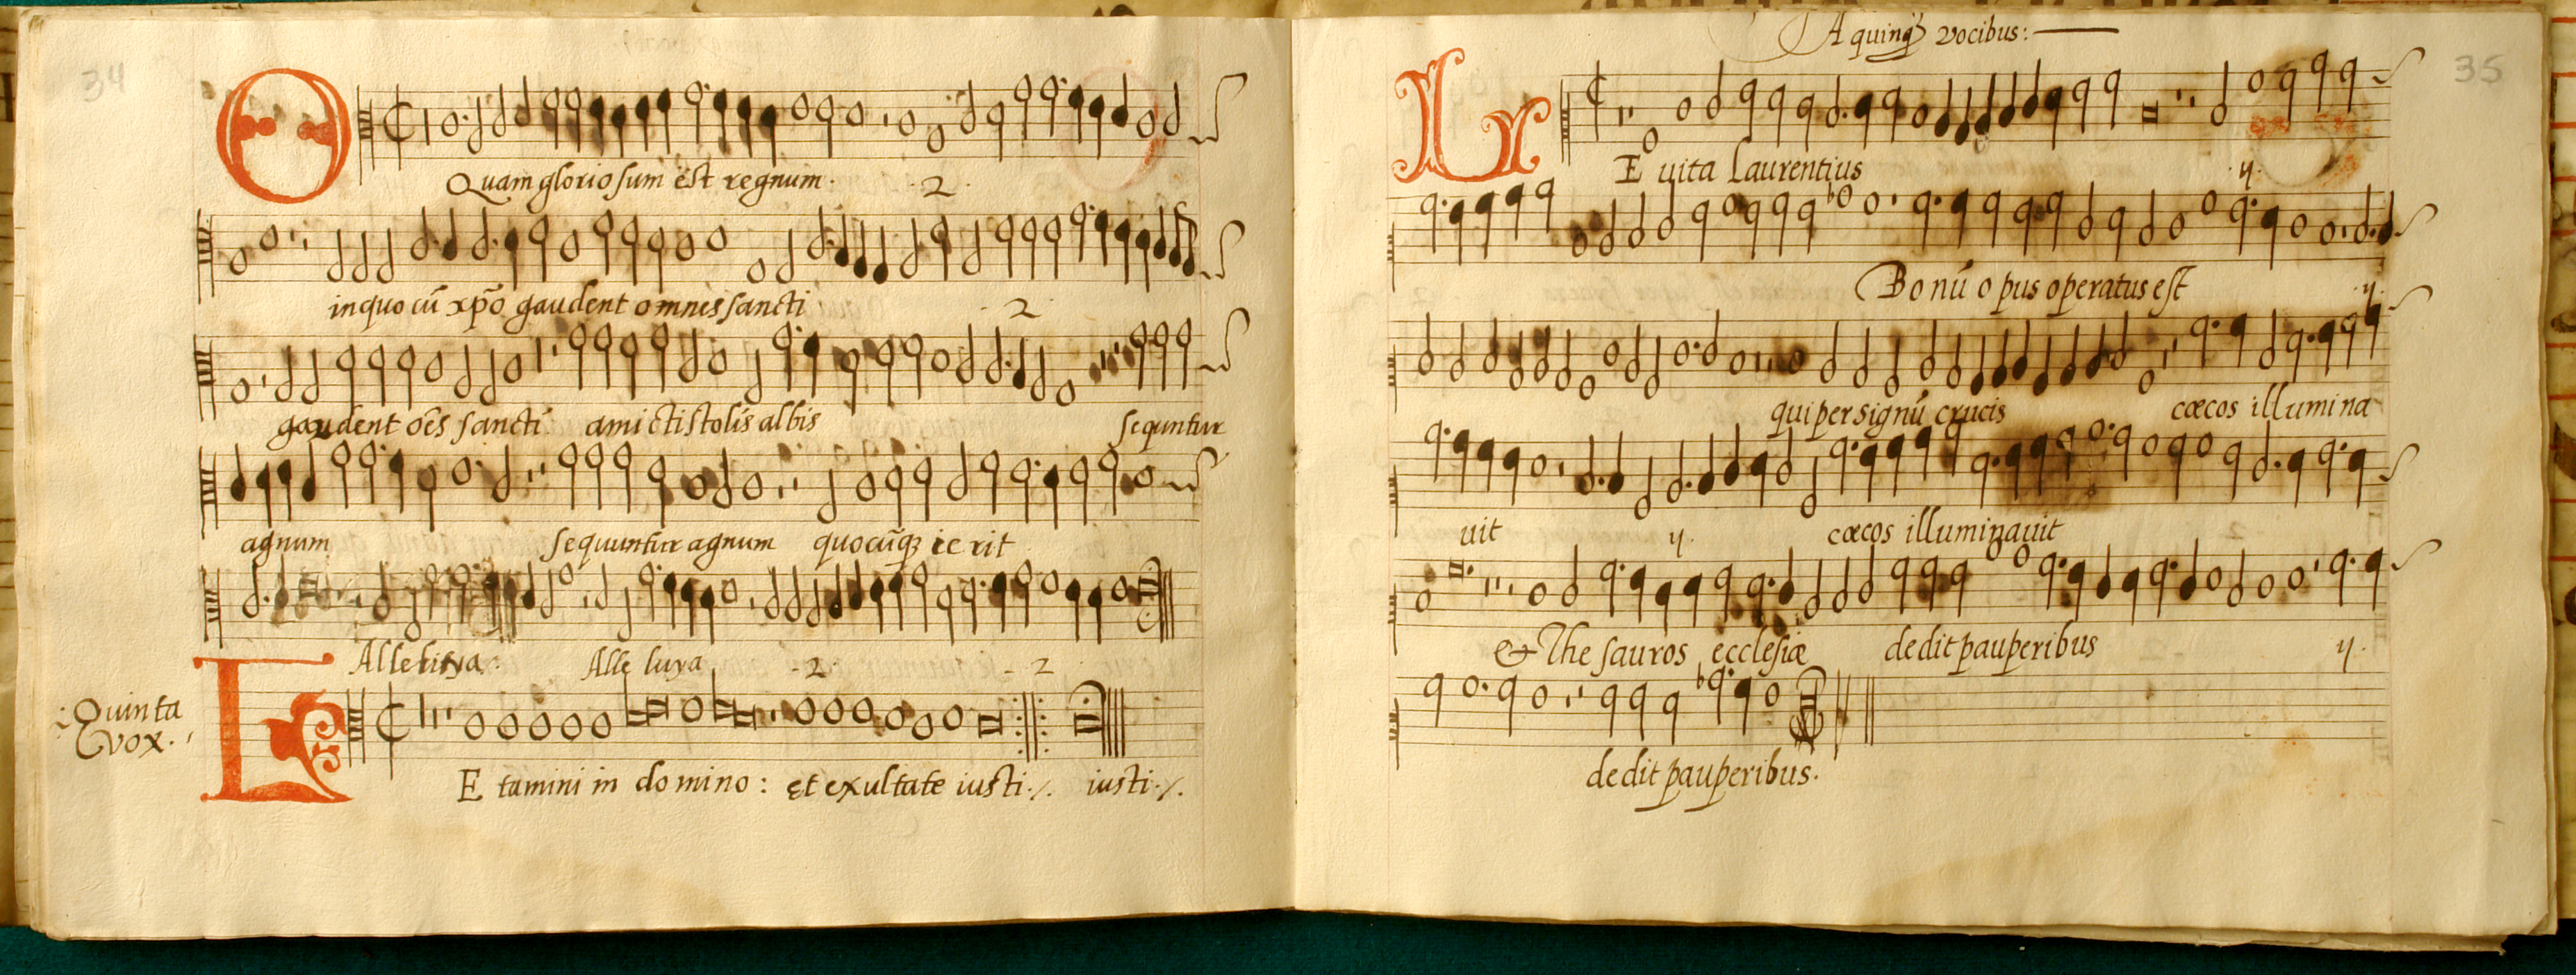 34
O
Quam gloriosum est regnum. .2.
in quo cū xp̄o gaudent omnes sancti .2.
gaudent oēs sancti amicti stolis albis sequntur
agnum sequuntur agnum quocūq₃ ierit
Alleluya: Alle luya .2. .2.
Quinta
vox.
L
E tamini in domino: et exultate iusti ·/. iusti ·/.
A quinq₃ vocibus:
35
LE vita Laurentius .ij.
Bonū opus operatus est .ij.
qui per signū crucis cæcos illumina
uit .ij. cæcos illuminauit
& The sauros ecclesiæ dedit pauperibus ij.
dedit pauperibus.